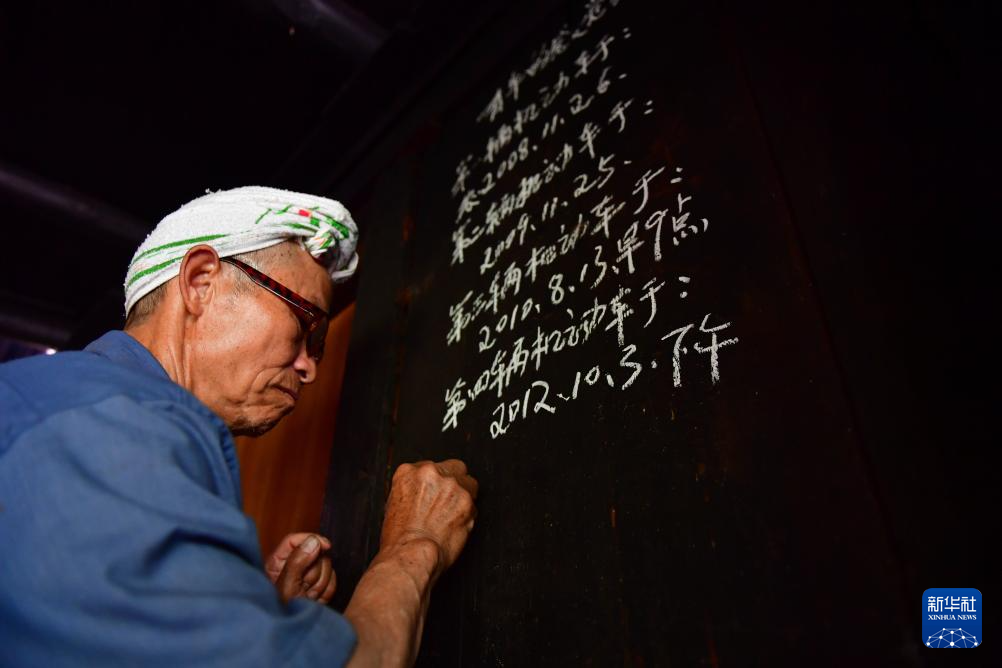 第一辆机动车于:
2008.11.26.
第二辆机动车于:
2009.11.25.
第三辆机动车于:
2010.8.13.早9点
第四辆机动车于:
2012.10.3.下午
新华社
XINHUA NEWS